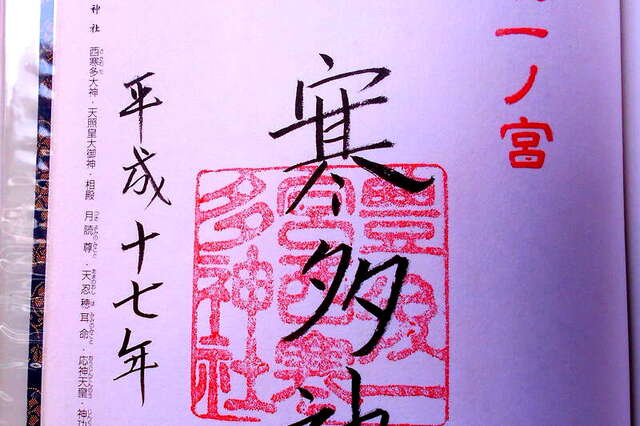 一ノ宮
寒多神
豊後一
宮西寒
多神社
平成十七年
神社 西寒多大神・天照皇大御神・相殿 月読尊・天忍穂耳命・応神天皇・神功